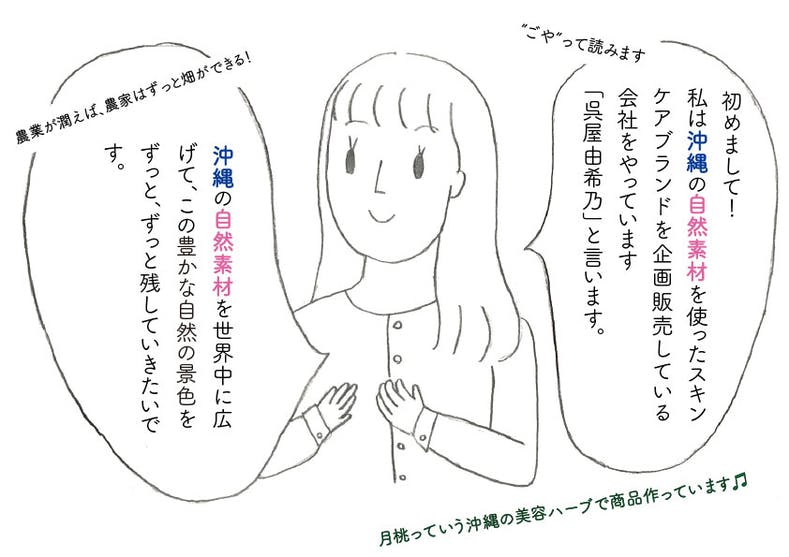 “ごや”って読みます
初めまして！
私は沖縄の自然素材を使ったスキン
ケアブランドを企画販売している
会社をやっています
「呉屋由希乃」と言います。
農業が潤えば、農家はずっと畑ができる！
沖縄の自然素材を世界中に広
げて、この豊かな自然の景色を
ずっと、ずっと残していきたいで
す。
月桃っていう沖縄の美容ハーブで商品作っています♫